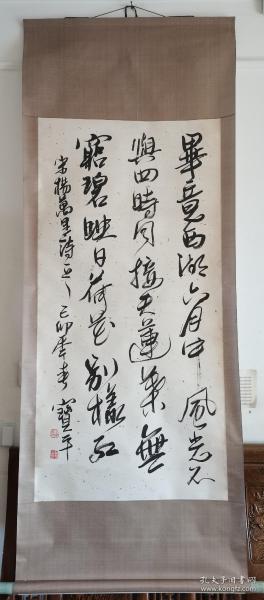 畢竟西湖六月中風光不
與四時同接天蓮葉無
窮碧映日荷花別樣紅
宋楊萬里詩一首己卯季春寶平
孔夫子旧书网
www.kongfz.com